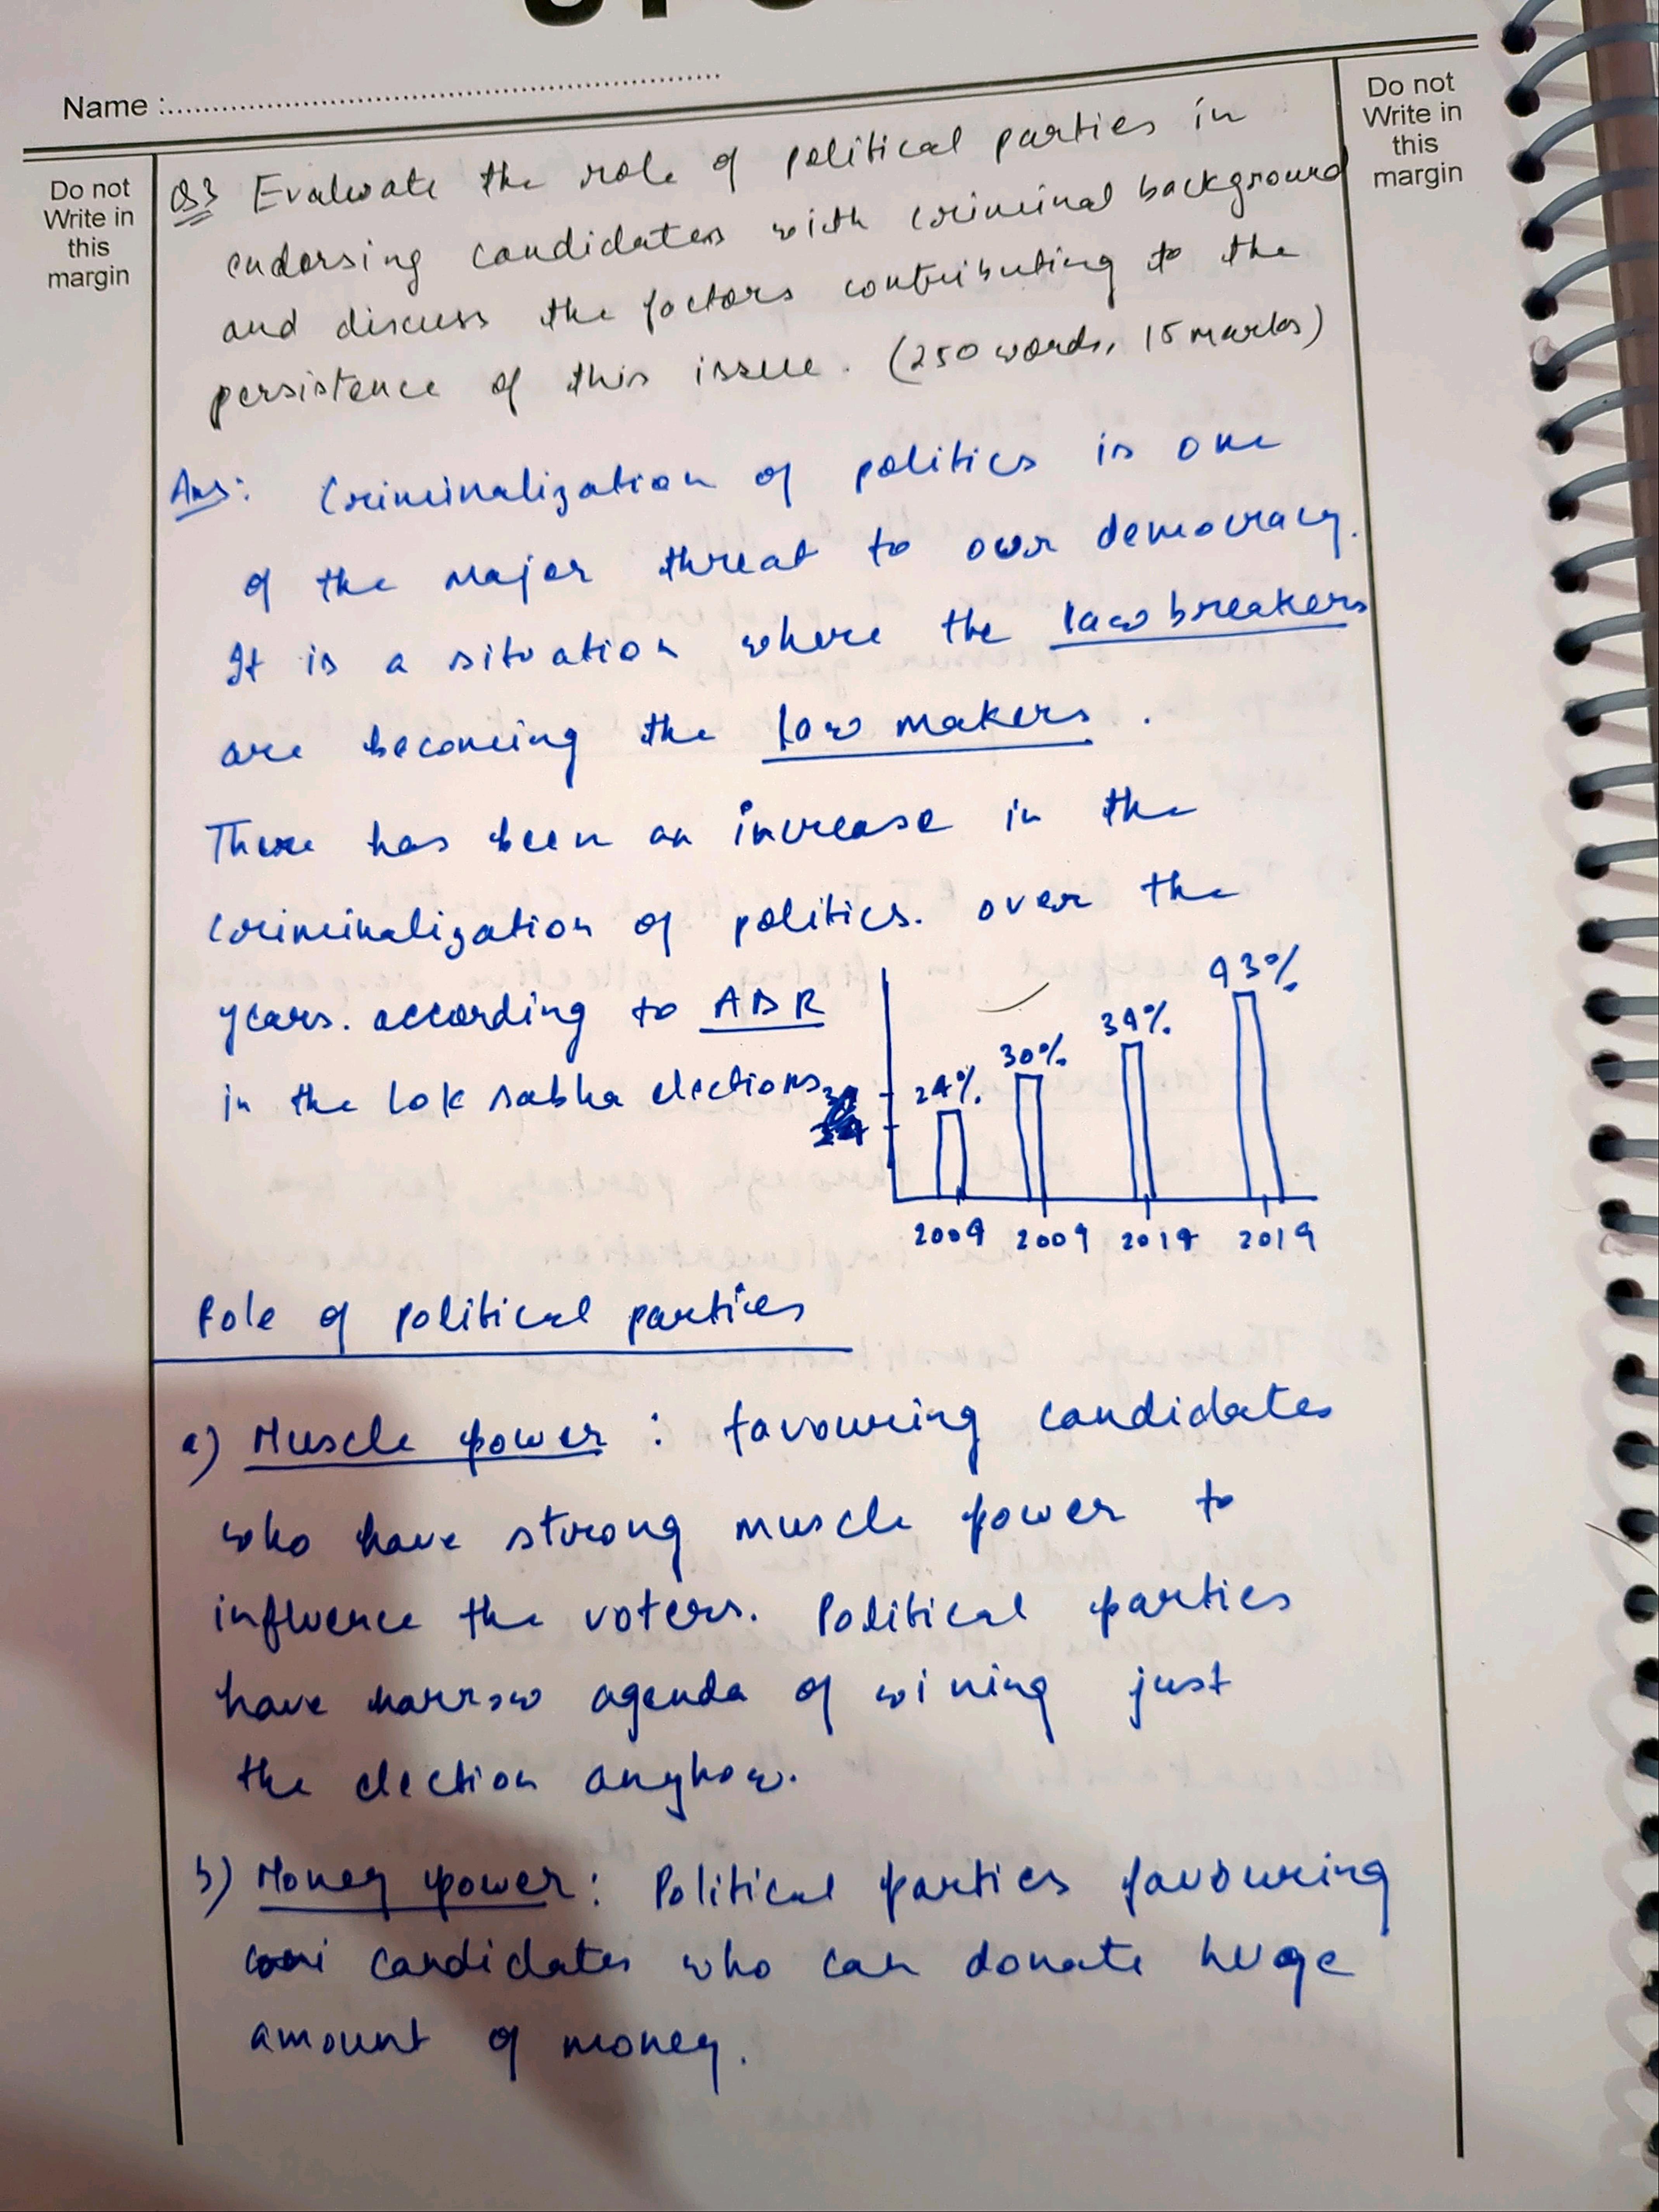 Name :
Do not
Write in
this
margin
Do not
Write in
this
margin
Q3 Evaluate the role of political parties in
endorsing candidates with criminal background
and discuss the factors contributing to the
persistence of this issue. (250 words, 15 marks)
Ans: Criminalization of politics is one
of the major threat to our democracy.
It is a situation where the law breakers
are becoming the law makers.
There has been an increase in the
criminalization of politics. over the
years. according to ADR
in the lok sabha elections
24% 30% 34% 43%
2004 2009 2014 2019
Role of political parties
a) Muscle power : favouring candidates
who have strong muscle power to
influence the voters. Political parties
have narrow agenda of wining just
the election anyhow.
b) Money power : Political parties favouring
candidates who can donate huge
amount of money.